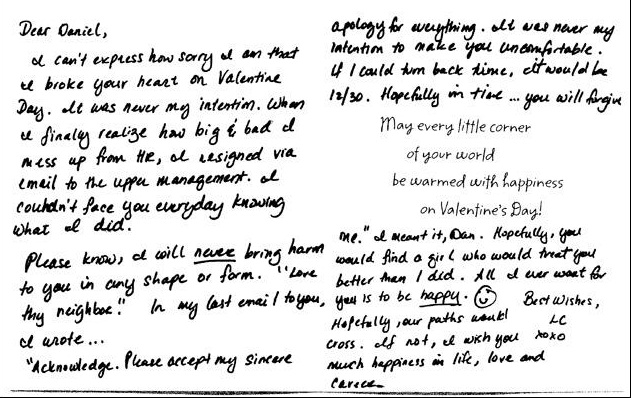 Dear Daniel,
I can't express how sorry I am that
I broke your heart on Valentine
Day. It was never my intention. When
I finally realize how big & bad I
mess up from HR, I resigned via
email to the upper management. I
couldn't face you everyday knowing
what I did.
Please know, I will never bring harm
to you in any shape or form. "Love
thy neighbor." In my last email to you,
I wrote...
"Acknowledge. Please accept my sincere
apology for everything. It was never my
intention to make you uncomfortable.
If I could turn back time, it would be
12/30. Hopefully in time ... you will forgive
May every little corner
of your world
be warmed with happiness
on Valentine's Day!
me." I meant it, Dan. Hopefully, you
would find a girl who would treat you
better than I did. All I ever want for
you is to be happy. ☺
Hopefully, our paths would
cross. If not, I wish you
much happiness in life, love and
career
Best Wishes,
LC
xoxo